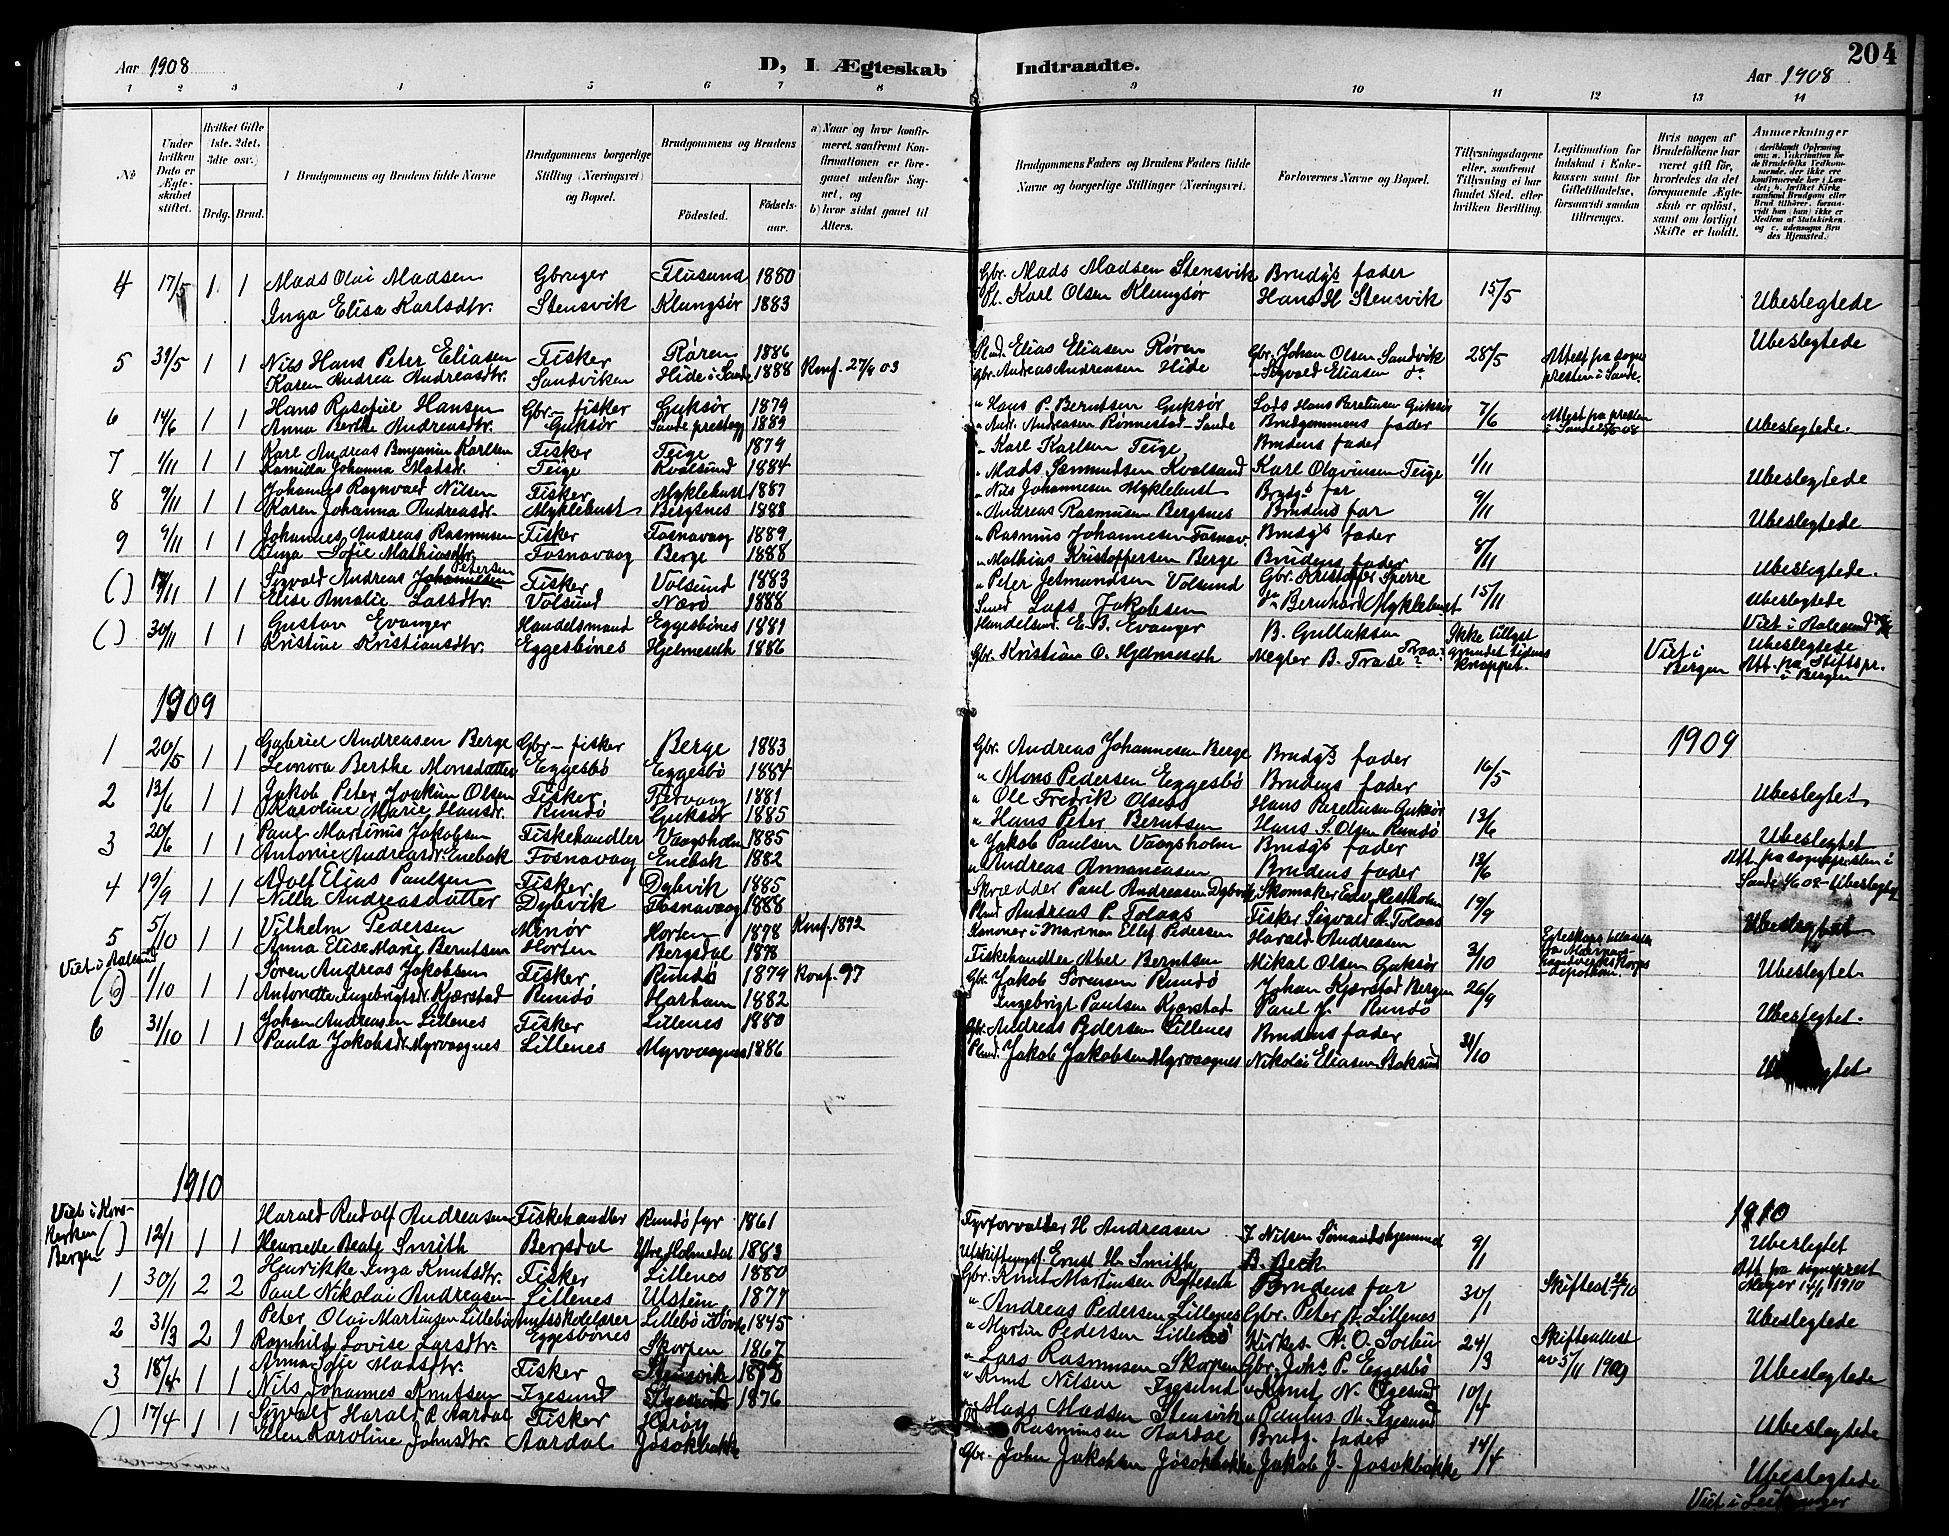 Aar 1908
D, I Ægteskab Indtraadte.
204
Aar 1908
1 2 3 4 5 6 7 8 9 10 11 12 13 14
No
Under hvilken Dato er Ægteskabet stiftet.
Hvilket Gifte 1ste. 2det. 3die osv.)
Brdg. Brud.
Brudgommens og Brudens fulde Navne
Brudgommens borgerlige Stilling (Næringsvei) og Bopæl.
Brudgommens og Brudens
Födested.
Födselsaar.
a) Naar og hvor konfirmeret, samfremt Konfirmationen er foregaaet udenfor Sognet, og
b) hvor sidst gaaet til Alters.
Brudgommens Faders og Brudens Faders fulde Navne og borgerlige Stillinger (Næringsvei.
Forlovernes Navne og Bopæl.
Tillysningsdagene eller, samfremt Tillysning ei har fundet Sted, efter hvilken Bevilling.
Legitimation for Indskud i Enkekassen samt for Giftetilladelse, forsaavidt saadan tiltrænges.
Hvis nogen af Brudefolkene har været gift för, hvorledes da det foregaaende Ægteskab er oplöst, samt om lovligt Skifte er holdt.
Anmærkninger
4 17/5 1 1 Mads Olai Madsen Gbruger Flusund 1880 Gbr. Mads Madsen Stensvik Brudgs fader 15/5
Inga Elisa Karlsdtr. Stensvik Klungsør 1883 Pl. Karl Olsen Klungsør Hans H Stensvik Ubeslegtede
5 31/5 1 1 Nils Hans Peter Eliasen Fisker Røren 1886 Elias Eliasen Røren Gbr. Johan Olsen Sandvik 28/5 Attest fra sogne Ubeslegtede
Karen Andrea Andreasdtr. Sandviken Hide i Sande 1888 Konf. 27/9 03 Gbr. Andreas Andreasen Hide Sigvald Eliasen do presten i Sande.
6 14/6 1 1 Hans Rasofiel Hansen Gbr - fisker Guksør 1879 " Hans P. Berntsen Guksør Lods Hans Paretiusen Guksør 7/6 Attest fra presten
Anna Berthe Andreasdtr. Guksør Sande prestegj 1889 " Andr. Andreasen Rönnestad - Sande Brudgommens fader i Sande 25/5 08 Ubeslegtede.
7 1/11 1 1 Karl Andreas Benjamin Karlsen Fisker Teige 1879 " Karl Karlsen Teige Brudens fader 1/11
Kamilla Johanna Madsdr. Teige Kvalsund 1884 " Mads Samundsen Kvalsund Karl Olavinsen Teige Ubeslegtede
8 9/11 1 1 Johannes Ragnvald Nilsen Fisker Myklebust 1887 " Nils Johannesen Myklebust Brudgs far 9/11
Karen Johanna Andreasdr. Myklebust Bergsnes 1888 " Andreas Rasmusen Bergsnes Brudens far Ubeslegtede
9 9/11 1 1 Johannes Andreas Rasmusen Fisker Fosnavaag 1889 " Rasmus Johannesen Fosnav. Brudgs fader 8/11
Inga Sofie Mathiasdtr. Fosnavaag Berge 1888 " Mathias Kristoffersen Berge Brudens fader Ubeslegtede.
( ) 17/11 1 1 Sigvald Andreas Johannesen Petersen Fisker Volsund 1883 " Peter Jetmundsen Volsund Gbr. Kristoffer Sperre 15/11
Elise Amalie Larsdtr. Volsund Nærö 1888 Smed Lars Jakobsen do Bernhard Myklebust Ubeslegtede
Viet i Aalesund
( ) 30/11 1 1 Gustav Evanger Handelsmand Eggesbönes 1881 Handelsmd. E. B. Evanger B. Gullaksen Ikke tillyst Ubeslegtede
Kristine Kristiansdtr. Eggesbönes Hjelmeseth 1886 Gbr. Kristian O. Hjelmeseth Megler B. Traae grundet tidens knappet. Viet i Bergen Att. fra Stiftspr. i Bergen
1909
1909
1 20/5 1 1 Gabriel Andreasen Berge Gbr - fisker Berge 1883 Gbr. Andreas Johannesen Berge Brudgs fader 16/5
Leonora Berthe Monsdatter Eggesbö Eggesbö 1884 " Mons Pedersen Eggesbö Brudens fader Ubeslegtet
2 13/6 1 1 Jakob Peter Joakim Olsen Fisker 1881 " Ole Fredrik Olsen Hans Paretiusen Guksør 13/6
Karoline Marie Hansdr. Rundö Guksør 1885 " Hans Peter Berntsen Hans S. Olsen Rundö Ubeslegtet
3 20/6 1 1 Paul Martinus Jakobsen Fiskehandler Vaagsholm 1885 " Jakob Paulsen Vaagsholm Brudgs fader 13/6 Att fra sognepresten i
Antonie Andreasdr. Enebak Fosnavaag Enebak 1882 " Andreas Annaniasen Brudens fader Sande - Ubeslegtet
4 19/9 1 1 Adolf Elias Paulsen Fisker Dybvik 1885 Skrædder Paul Andreasen Dybvik Skomaker Edv. Mestholm 19/9
Nilla Andreasdatter Dybvik Fosnavaag 1888 Pl. Andreas P. Tolaas Fisker Sigvald A. Tolaas Ubeslegtet
5 5/10 1 1 Vilhelm Pedersen Minör Horten 1878 Konf. 1892 Kanoner i Marinen Ellef Pedersen Harald Andreasen 3/10
Anna Elise Marie Berntsen Horten Bergsdal 1878 Fiskehandler Abel Berntsen Mikal Olsen Guksør Ubeslegtet
Viet i Aalesund ( ) 1/10 1 1 Sören Andreas Jakobsen Fisker Rundö 1879 Konf. 97 Gbr. Jakob Sörensen Rundö Johan Kjærstad Bergen 26/9
Antonette Ingebrigtsdr. Kjærstad Rundö Harham 1882 Ingebrigt Paulsen Kjærstad Paul J. Rundö Ubeslegtet.
6 31/10 1 1 Johan Andreasen Lillenes Fisker Lillenes 1880 Gbr. Andreas Pedersen Lillenes Brudens fader 31/10
Paula Jakobsdr. Myrvaagnes Lillenes Myrvaagnes 1886 Pl. Jakob Jakobsen Myrvaagnes Nikolai Eliasen Stoksund
1910
1910
Viet i Kors-Kerken Bergen ( ) 12/1 1 1 Harald Rudolf Andreasen Fiskehandler Rundö fyr 1861 Fyrforvalter H Andreasen J Nilsen Sömandshjemmet 9/1 Ubeslegtet
Beate Smith Bergsdal Ytre Holmedal 1883 Ernst H. Smith B. Beck Att fra sogneprest
1 30/1 2 2 Henrikke Inga Knutsdtr. Fisker Lillenes 1880 Gbr. Knut Martinsen Brudens far 30/1 Skifteat Mager 14/1 1910
Paul Nikolai Andreasen Lillenes Ulstein 1877 " Andreas Pedersen Lillenes Gbr. Peter A. Lillenes Ubeslegtede
2 31/3 2 1 Peter Olai Martinsen Lillebö Amtsskolelærer Lillebö 1845 " Martin Pedersen Lillebö Kirkes. 24/3 Skifteattest
Ragnhild Lovise Larsdtr. Eggesbönes Skorpen 1867 " Lars Rasmusen Skorpen Gbr. Johs P. Eggesbö av 5/11 1909 Ubeslegtede
3 18/4 1 1 Anna Sofie Madsdtr. Fisker Stensvik " Knut Nilsen Igesund " Knut N. Igesund 10/4
Nils Johannes Knutsen Igesund Igesund 1876 " Mads Madsen Stensvik " Paulus Igesund Ubeslegtede
( ) 17/4 1 1 Sigvald Harald R Aardal Fisker Heröy Rasmusen Aardal Brudg. fader 14/4
Elen Karoline Johnsdtr. Aardal Jösokbakke Gbr. John Jakobsen Jösokbakke Jakob J. Jösokbakke Ubeslegtede
Viet i